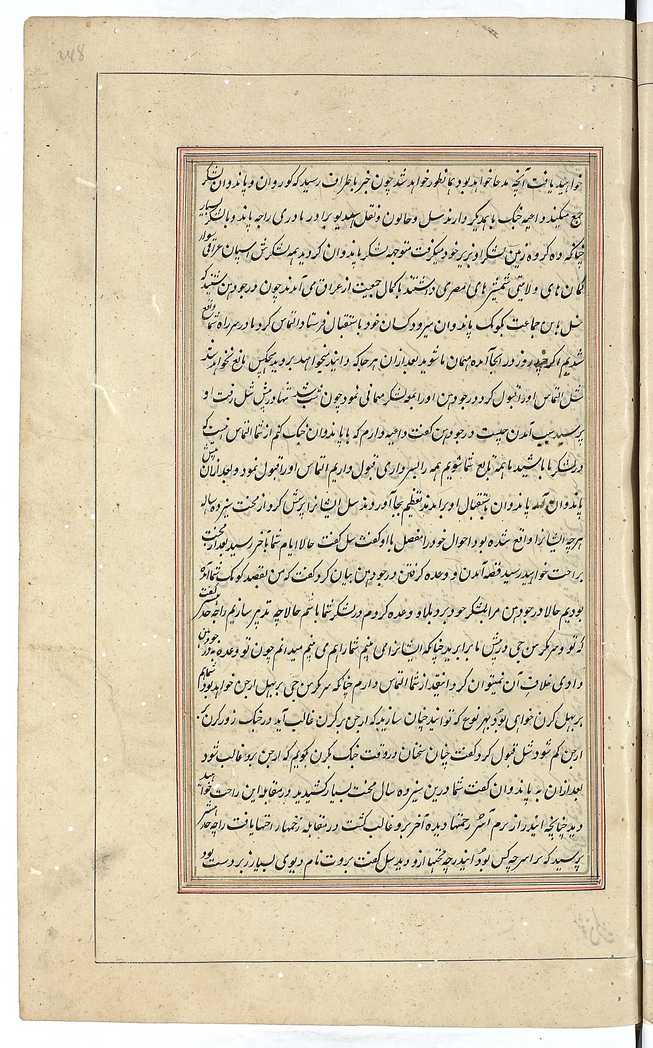 خواهید یافت آنچه مدعا خواهد بود همانطور خواهد شد چون خبر باطراف رسید که کوروان و پاندوان لشکر
جمع میکنند و داعیه جنک باهمدیگر دارند سل و خالوی نقل سهدیو برادر مادری راجه پاند و با لشکر بسیار
چنانکه ده کروه زمین لشکر او نزیر خود میگرفت متوجه لشکر پاندوان گردید همه لشکرش اسپان عراقی سوار
کمان های ولایتی شمشیر های مصری داشتند با کمال جمعیت از عراق می آمدند چون درجودهن شنید که
سل باین جماعت بکومک پاندوان میرود کسان خود باستقبال فرستاد و التماس کرد ما در سر راه شما واقع
شدیم اگر چند روز در اینجا آمده مهمان ما شوید بعد از ان هر جا که دانید بخواهید بروید هیچکس مانع نخواهد شد
سل التماس او را قبول کرد درجودهن او را بموبه لشکر مهمانی نمود چون شب شد تنها در پیش سل رفت او
پرسید سبب آمدن چیست درجودهن گفت داعیه دارم که با پاندوان جنک کنم از شما التماس اینست که
در لشکر ما باشید ما همه تابع شما شویم همه را بسرداری قبول داریم التماس او را قبول نمود و بعد از ان پیش
پاندوان آمد پاندوان باستقبال او برآمدند تعظیم بجا آوردند سل ایشانرا پرسش کرد از محنت سیزده ساله
هر چه ایشانرا واقع شده بود احوال خود را مفصل با او گفتند سل گفت حالا ایام شما بآخر رسید بعد از محنت
براحت خواهید رسید قصه آمدن و وعده گرفتن درجودهن بیان کرد گفت که من بقصد کومک شما آمده
بودیم حالا درجودهن مرا بلشکر خود برد بلا و وعده کردم در لشکر شما باشم حالا چه تدبیر سازیم راجه جدشتر گفت
که تو و سرکرسن جی در پیش ما برابرید چنانکه ایشانرا می بینیم شما را هم می بینیم میدانم چون تو وعده بدرجودهن
دادی خلاف آن نمیتوان کرد اینقدر از شما التماس دارم چنانکه سرکرسن جی بر بهل ارجن خواهد بود شما هم
بر بهل کرن خواهی بود بهر نوع که توانید چنان سازید که ارجن بر کرن غالب آید در جنک زور کرن از
ارجن کم شود سل قبول کرد گفت چنان سخنان در وقت جنک بکرن گویم که ارجن برو غالب شود
بعد از ان به پاندوان گفت شما درین سیزده سال محنت بسیار کشیدید در مقابله این راحت خواهید
دید چنانچه ایندر از برم آسر زحمتها دیده آخر برو غالب گشت در مقابله زخمها راحتها یافت راجه جدشتر
پرسید که براسر چه کس بود ایندر چه محنتها ازو دید سل گفت بروت نام دیوی بسیار زبردست بود